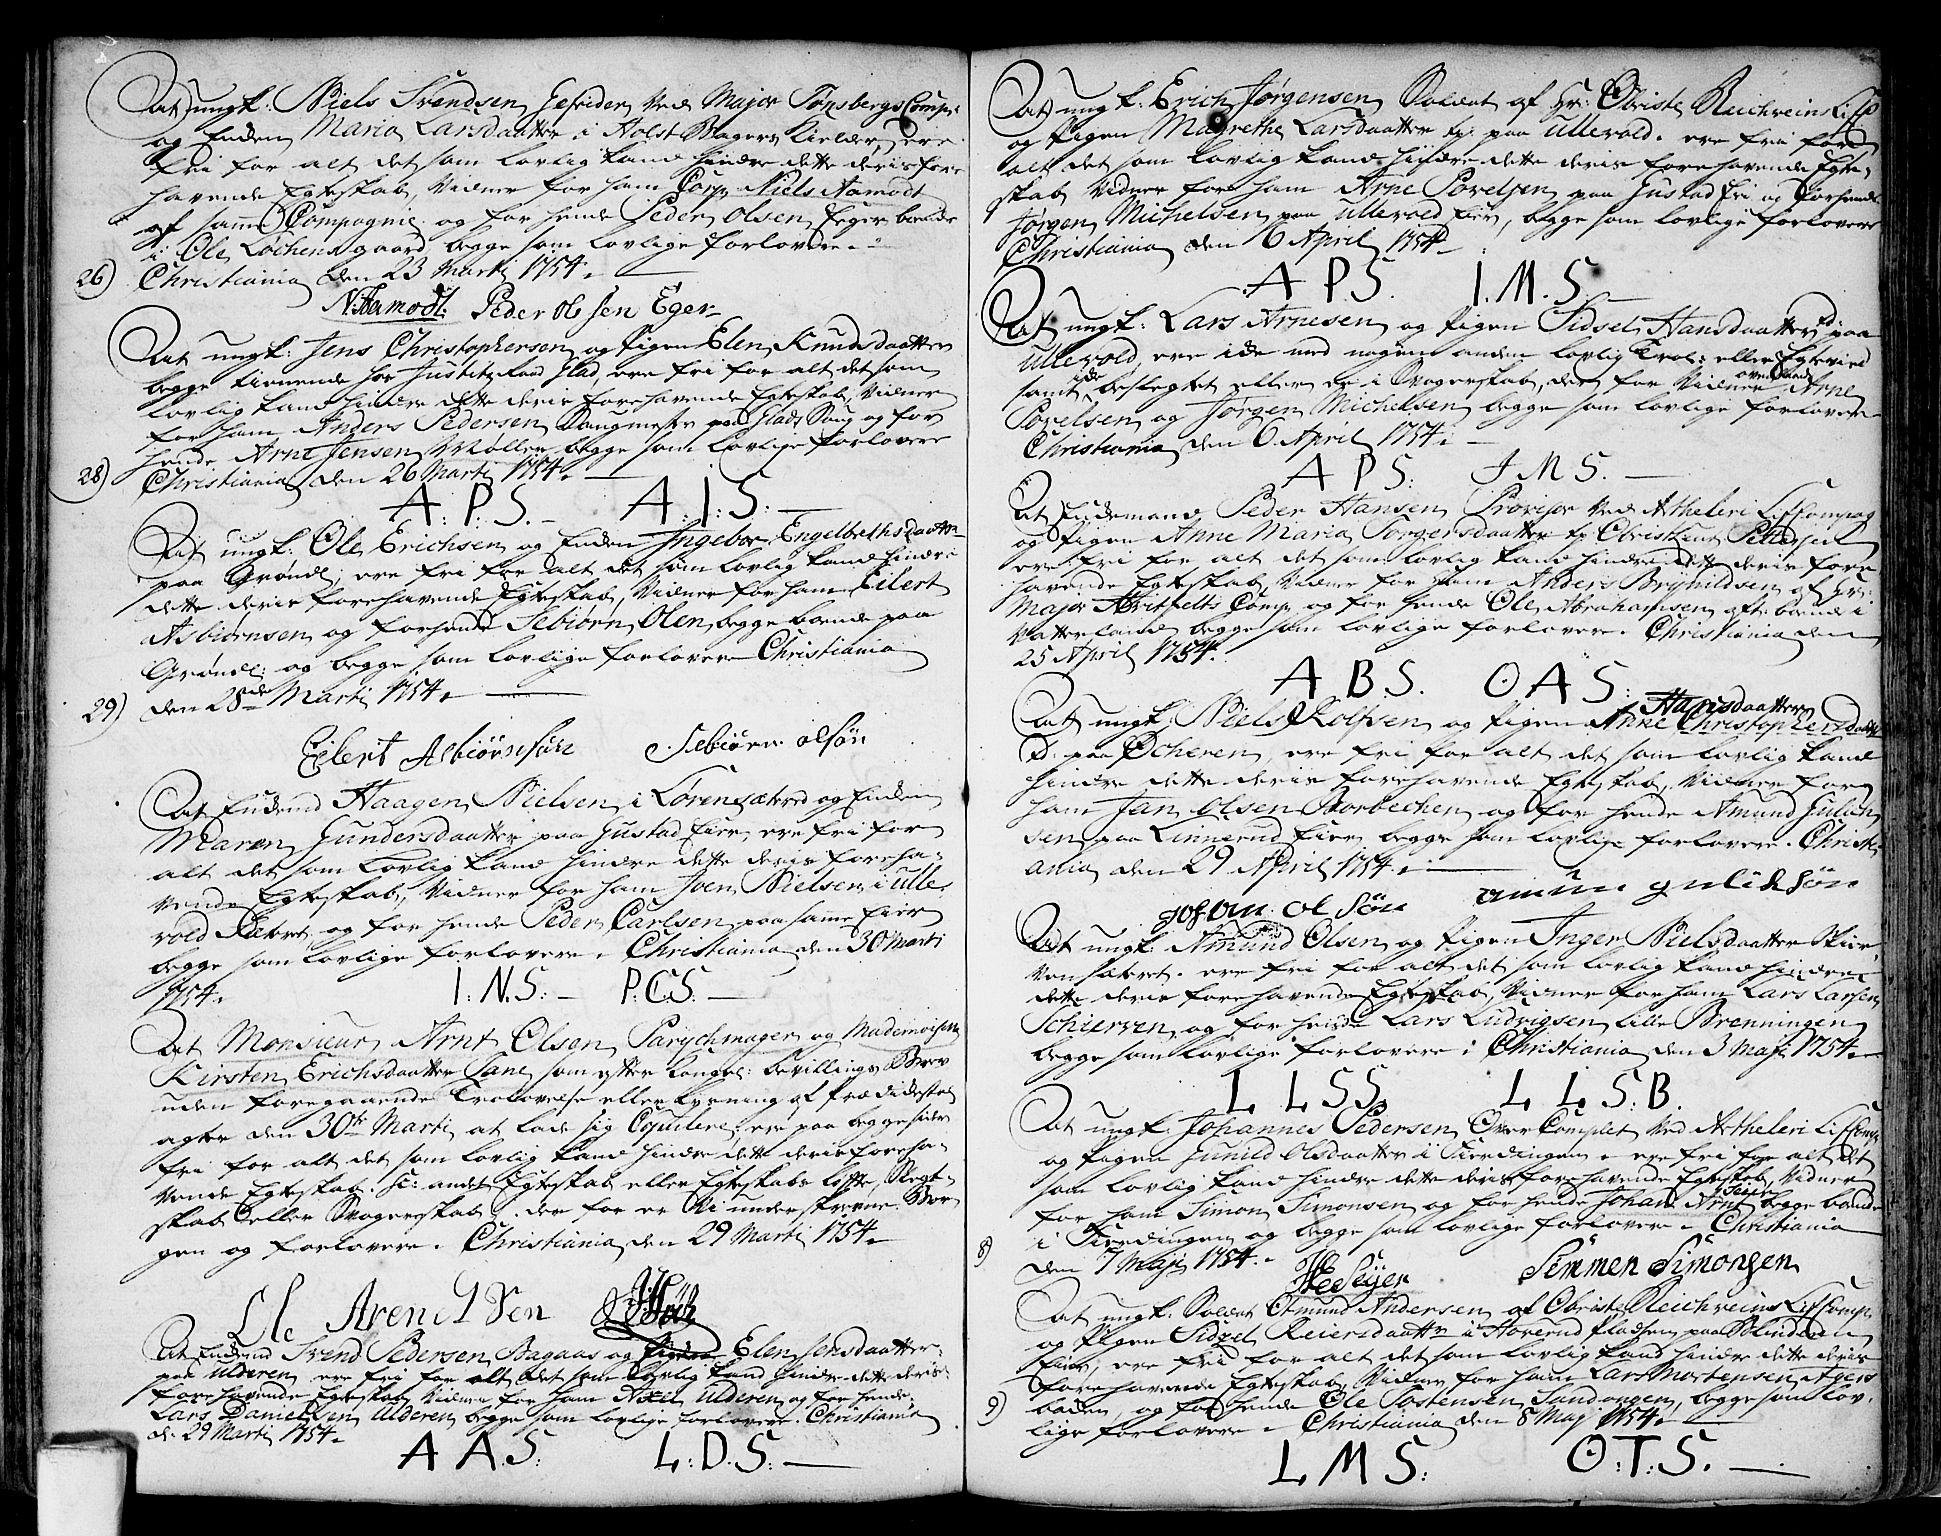 At ungk: Niels Svendsen Gefrider ved Major Tønsbergs Comp:
og Enken Maria Larsdaatter i Holst Bagers Kielder, ere
fri for alt det som lovlig kand hindre dette deris fore
havende Egteskab, Vidner for ham Corp. Niels Aamodt
af samme Compagnie og for hende Peder Olsen Eger boende
i Ole Lochens gaard begge som lovlige forlovere.
26) Christiania den 23 Marti 1754.
N: Aamodt: Peder Olsen Eger
At ungk: Jens Christophersen og Pigen Elen Knudsdaatter
begge tienende hos Justitz Raad Glad, ere fri for alt det som
lovlig kand hindre dette deris forehavende Egteskab, Vidner
for ham Anders Pedersen Saugmester paa Glads Saug og for
hende Arnt Jensen Møller begge som lovlige forlovere
28) Christiania den 26 Marti 1754.
A: P: S. A: I: S:
At ungk: Ole Erichsen og Enken Ingebor Engelbrethsdaatter
paa Grønl: ere fri for alt det som lovlig kand hindre
dette deris forehavende Egteskab, Vidner for ham Eilert
Asbiørnsen og for hende Sebiørn Olsen, begge boende paa
Grønl: og begge som lovlige forlovere Christiania
29) den 28de Marti 1754.
Eilert Asbiørnsön Sebiørn olsön
At Enkemd Haagen Nielsen i Sørensætred og Enken
Maren Gundersdaatter paa Gustad Eier, ere fri for
alt det som lovlig kand hindre dette deris foreha-
vende Egteskab, Vidner for ham Joen Nielsen i Ulle-
vold Sætret og for hende Peder Carlsen paa samme Eier
begge som lovlige forlovere. Christiania den 30 Marti
1754.
I: N: S: P: C: S:
At Monsieur Arnt Olsen Parychmager og Mademoiselle
Kirsten Erichsdaatter Lane som efter Kongel: bevillings Brev
uden foregaaende Trolovelse eller Lysning af Prædikestol
agter den 30te Marti at lade sig Copulere, ere paa begge sider
fri for alt det som lovlig kand hindre dette deris foreha-
vende Egteskab. s: andet Egteskab eller Egteskabs løfte, Slegt-
skab eller Svogerskab, der for er Vi underskrevne Bor-
gen og forlovere. Christiania den 29 Marti 1754.
Ole Aren
At Enkemd Svend Pedersen Bagaas og Elen Jensdaatter
paa Ulderen ere fri for alt det som lovlig kand hindre dette deris
forehavende Egteskab, Vidner for ham Axel Ulderen og for hende
Lars Danielsen Ulderen, begge som lovlige forlovere. Christiania
d: 29 Marti 1754.
A A: S: L: D: S:
At ungk: Erich Jørgensen Soldat af Hr: Obriste Reichweins Lif C
og Pigen Magrethe Larsdaatter tj: paa Ullevold. ere fri for
alt det som lovlig kand hindre dette deris forehavende Egte-
skab, Vidner for ham Arne Povelsen paa Gustad Eie og for hende
Jørgen Michelsen paa Ullevold Eier, begge som lovlige forlovere
Christiania den 6 April 1754
A P S. I. M. S.
At ungk: Lars Arnesen og Pigen Sidsel Hansdaatter paa
Ullevold, ere ikke med nogen anden lovlig Trol: eller Egteviel
samt ikke beslegtet eller er i Svogerskab, det for Vidner ovenst: Arne
Povelsen og Jørgen Michelsen begge som lovlige forlovere
Christiania den 6 April 1754.
A P S: J M S.
At Enkemand Peder Hansen Provisor ved Artheleri Lif Compag
og Pigen Anne Maria Torgersdaatter tj: Christian Pettersen
ere fri for alt det som lovlig kand hindre dette deris fore
havende Egteskab, Vidner for ham Anders Brynildsen af Hr:
Major Hvitfelts Comp: og for hende Ole Abrahamsen, ofte boende i
Vatterland begge som lovlige forlovere. Christiania den
25 April 1754.
A B. S. O A S:
At ungk: Niels Rolfsen og Pigen Anne Hansdaatter Christophersdaatter
d: paa Scheren, ere fri for alt det som lovlig kand
hindre dette deris forehavende Egteskab, Vidner for
ham Jan Olsen Storbechen og for hende Amund Gulich
sen paa Linnerud Eier, begge som lovlige forlovere. Christi-
ania den 29 April 1754.
Johan olsön amun gulichsön
At ungk: Amund Olsen og Pigen Inger Nielsdaatter Skier
vensætret. ere fri for alt det som lovlig kand hindre
dette deris forehavende Egteskab, Vidner for ham Lars Larsen
Schierven, og for hende Lars Ludvigsen Lille Brenningen
begge som lovlige forlovere. Christiania den 3 Maji 1754.
L L S S. L L S. B.
At ungk: Johannes Pedersen Over Complet ved Artheleri Lif Comp
og Pigen Gunild Olsdaatter i Fierdingen. ere fri for alt det
som lovlig kand hindre dette deris forehavende Egteskab, Vidner
for ham Simon Simonsen og for hende Johan Arnt Seyer begge boende
i Fierdingen og begge som lovlige forlovere. Christiania
8) den 7 Maji 1754.
Seyer Simmen Simonsen
At ungk: Soldat Omund Andersen af Obriste Reichweins Lif Comp
og Pigen Sidzel Reiersdaatter i Hoverud Pladsen paa Blindern
Eier, ere fri for alt det som lovlig kand hindre dette deris
forehavende Egteskab, Vidner for ham Lars Mortensen Agers
9) backen, og for hende Ole Tostensen Sandongen, begge som lov-
lige forlovere. Christiania den 8 May 1754.
L M S: O: T: S.